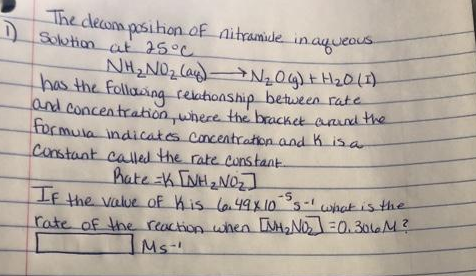 1) The decomposition of nitramide in aqueous
Solution at 25°C
NH₂NO₂ (aq) → N₂O(g) + H₂O (I)
has the following relationship between rate
and concentration, where the bracket around the
formula indicates concentration and K is a
constant called the rate constant.
Rate = K [NH₂NO₂]
If the value of K is 6.49 x 10⁻⁵ s⁻¹ what is the
rate of the reaction when [NH₂NO₂] = 0.306M?
Ms⁻¹